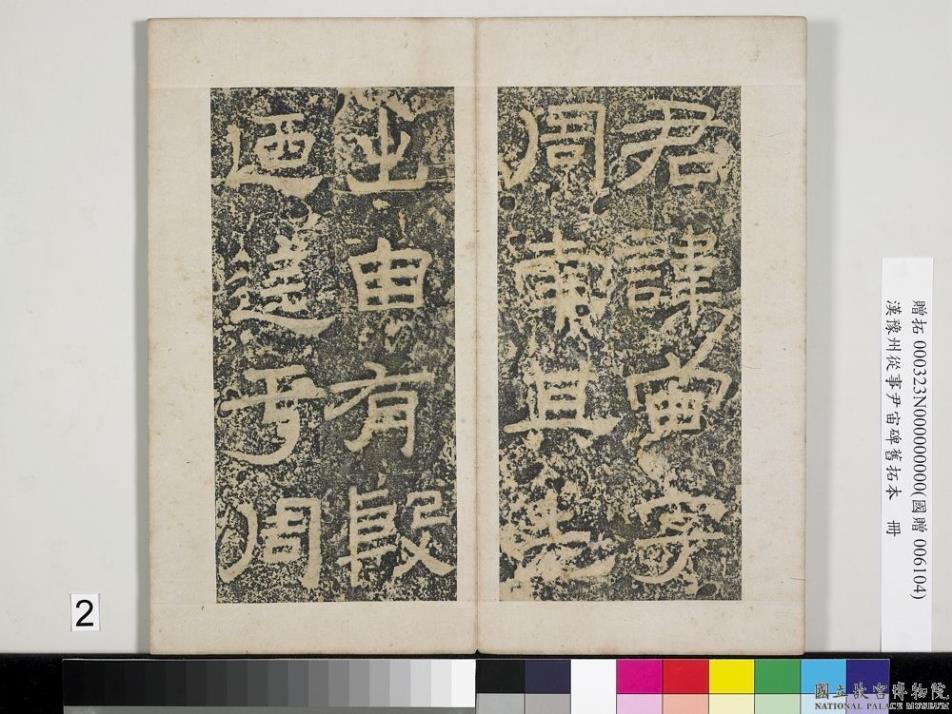 君諱宙字
周南其先
出由有殷
迺于周
贈拓 000323N000000000(國贈 006104)
漢豫州從事尹宙碑舊拓本 冊
2
國立故宮博物院
NATIONAL PALACE MUSEUM